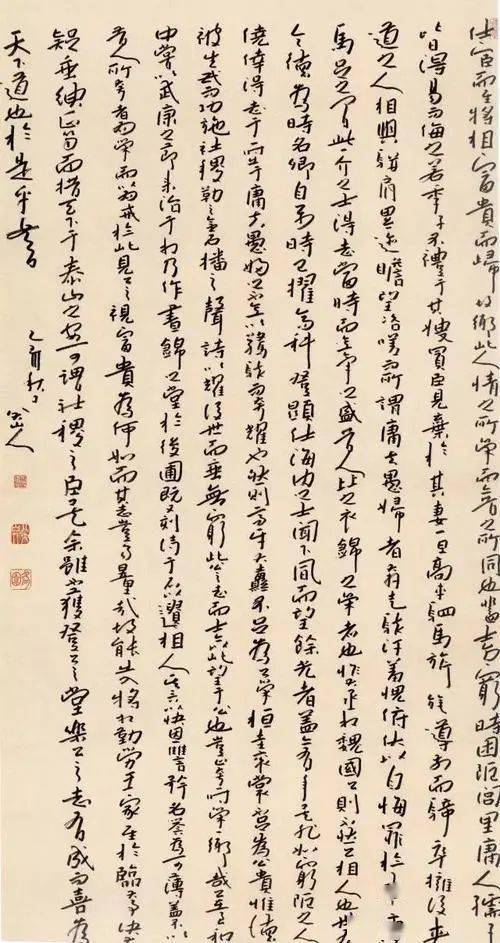 仕宦而至將相富貴而歸故鄉此人情之所榮而今昔之所同也蓋士方窮時困阨閭里庸人孺子
皆得易而侮之若季子不禮于其嫂買臣見棄於其妻一旦高車駟馬旗旄導前而騎卒擁後夾
道之人相與駢肩累迹瞻望咨嗟而所謂庸夫愚婦者奔走駭汗羞愧俯伏以自悔罪於車塵
馬足之間此一介之士得志當時而意氣之盛昔人比之衣錦之榮者也惟大丞相魏國公則不然公相人也世有
令德為時名卿自公少時已擢高科登顯仕海內之士聞下風而望餘光者蓋亦有年矣非如窮阨之人
僥倖得志于一時出于庸夫愚婦之不意以驚駭而夸耀之也然則高牙大纛不足為公榮桓圭袞裳不足為公貴惟德
被生民而功施社稷勒之金石播之聲詩以耀後世而垂無窮此公之志而士亦以此望于公也豈止夸一時榮一鄉哉公在至和
中嘗以武康之節來治于相乃作晝錦之堂於後圃既又刻詩于石以遺相人其言以快恩讎矜名譽為可薄蓋不以
昔人所夸者為榮而以為戒於此見公之視富貴為何如而其志豈易量哉故能出入將相勤勞王家至於臨大事決大
議垂紳正笏而措天下于泰山之安可謂社稷之臣矣余雖不獲登公之堂樂公之志有成而喜為
天下道也於是乎書
乙亥秋日 山人